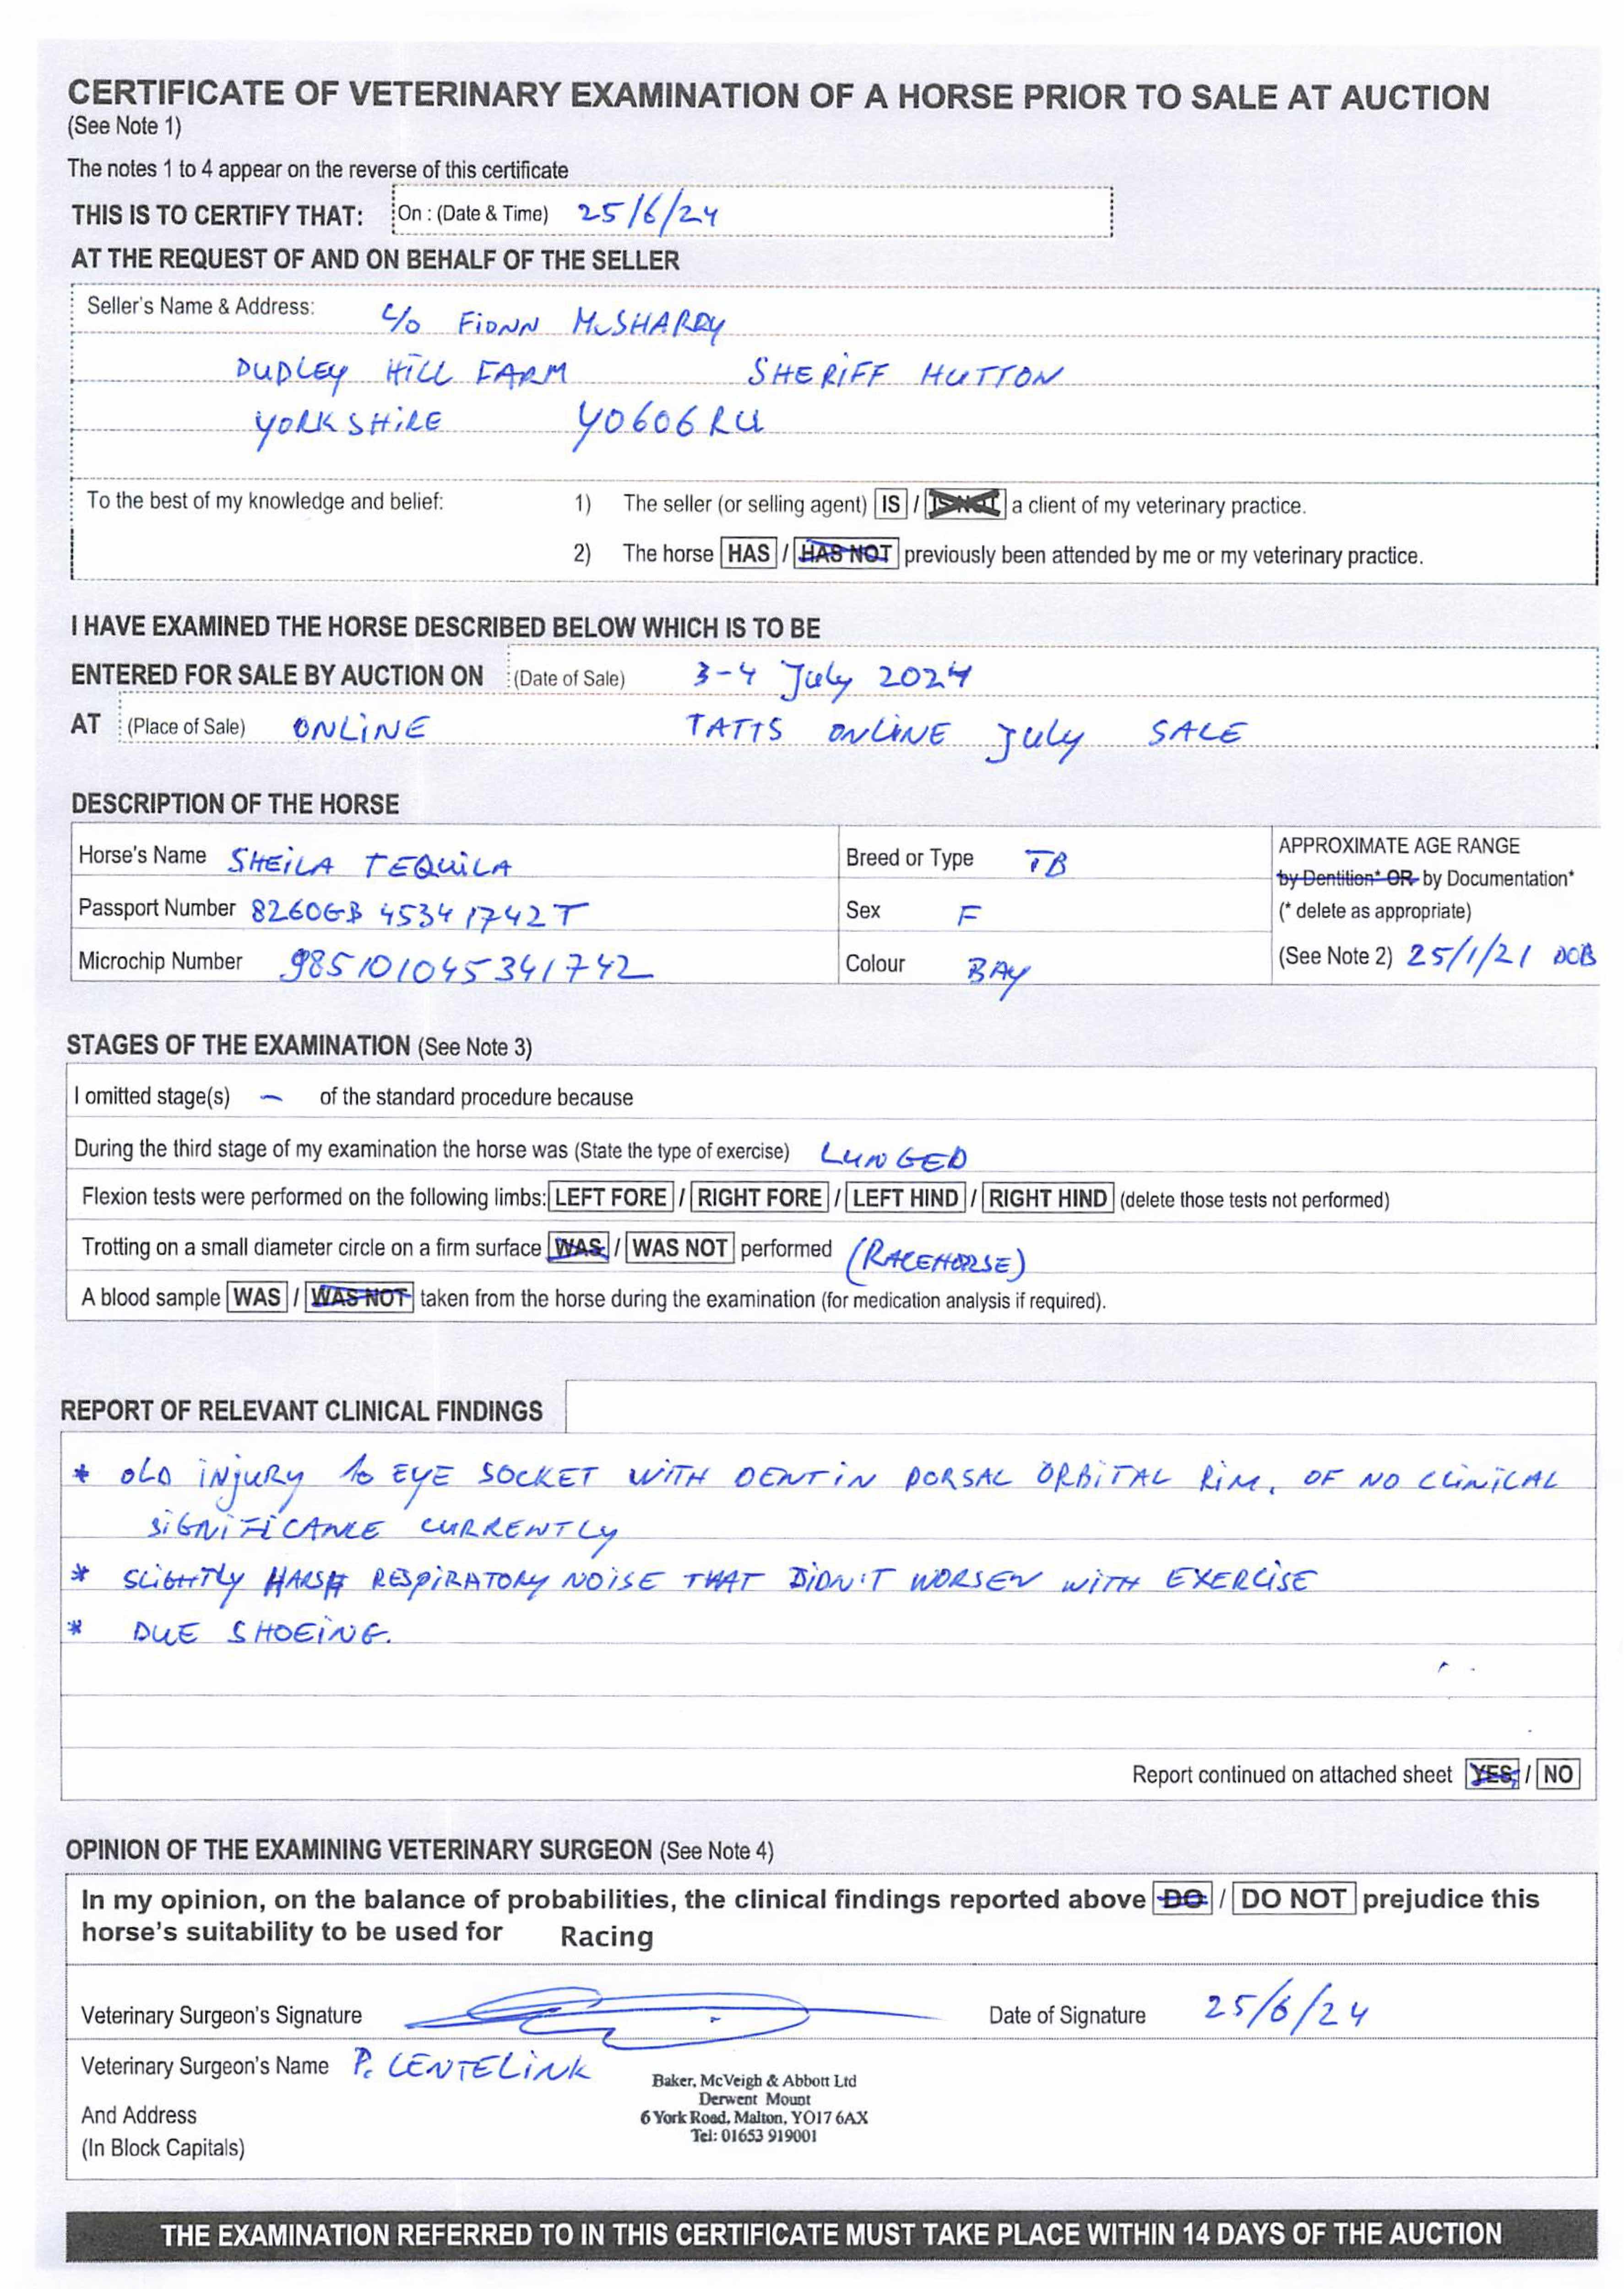 CERTIFICATE OF VETERINARY EXAMINATION OF A HORSE PRIOR TO SALE AT AUCTION
(See Note 1)
The notes 1 to 4 appear on the reverse of this certificate
THIS IS TO CERTIFY THAT: On : (Date & Time) 25/6/24
AT THE REQUEST OF AND ON BEHALF OF THE SELLER
Seller's Name & Address: c/o FIONN McSHARRY
DUDLEY HILL FARM SHERIFF HUTTON
YORKSHIRE YO606RU
To the best of my knowledge and belief: 1) The seller (or selling agent) IS / IS NOT a client of my veterinary practice.
2) The horse HAS / HAS NOT previously been attended by me or my veterinary practice.
I HAVE EXAMINED THE HORSE DESCRIBED BELOW WHICH IS TO BE
ENTERED FOR SALE BY AUCTION ON (Date of Sale) 3-4 July 2024
AT (Place of Sale) ONLINE TATTS ONLINE July SALE
DESCRIPTION OF THE HORSE
Horse's Name SHEILA TEQUILA Breed or Type TB APPROXIMATE AGE RANGE
by Dentition* OR by Documentation*
Passport Number 8260GB 45341742T Sex F (* delete as appropriate)
Microchip Number 985101045341742 Colour BAY (See Note 2) 25/1/21 DOB
STAGES OF THE EXAMINATION (See Note 3)
I omitted stage(s) – of the standard procedure because
During the third stage of my examination the horse was (State the type of exercise) LUNGED
Flexion tests were performed on the following limbs: LEFT FORE / RIGHT FORE / LEFT HIND / RIGHT HIND (delete those tests not performed)
Trotting on a small diameter circle on a firm surface WAS / WAS NOT performed (RACEHORSE)
A blood sample WAS / WAS NOT taken from the horse during the examination (for medication analysis if required).
REPORT OF RELEVANT CLINICAL FINDINGS
* OLD INJURY to EYE SOCKET WITH DENT IN DORSAL ORBITAL RIM, OF NO CLINICAL
SIGNIFICANCE CURRENTLY
* SLIGHTLY HARSH RESPIRATORY NOISE THAT DIDN'T WORSEN WITH EXERCISE
* DUE SHOEING.
Report continued on attached sheet YES / NO
OPINION OF THE EXAMINING VETERINARY SURGEON (See Note 4)
In my opinion, on the balance of probabilities, the clinical findings reported above DO / DO NOT prejudice this
horse's suitability to be used for Racing
Veterinary Surgeon's Signature Date of Signature 25/6/24
Veterinary Surgeon's Name P. LENTELINK
Baker, McVeigh & Abbott Ltd
Derwent Mount
And Address 6 York Road, Malton, YO17 6AX
Tel: 01653 919001
(In Block Capitals)
THE EXAMINATION REFERRED TO IN THIS CERTIFICATE MUST TAKE PLACE WITHIN 14 DAYS OF THE AUCTION